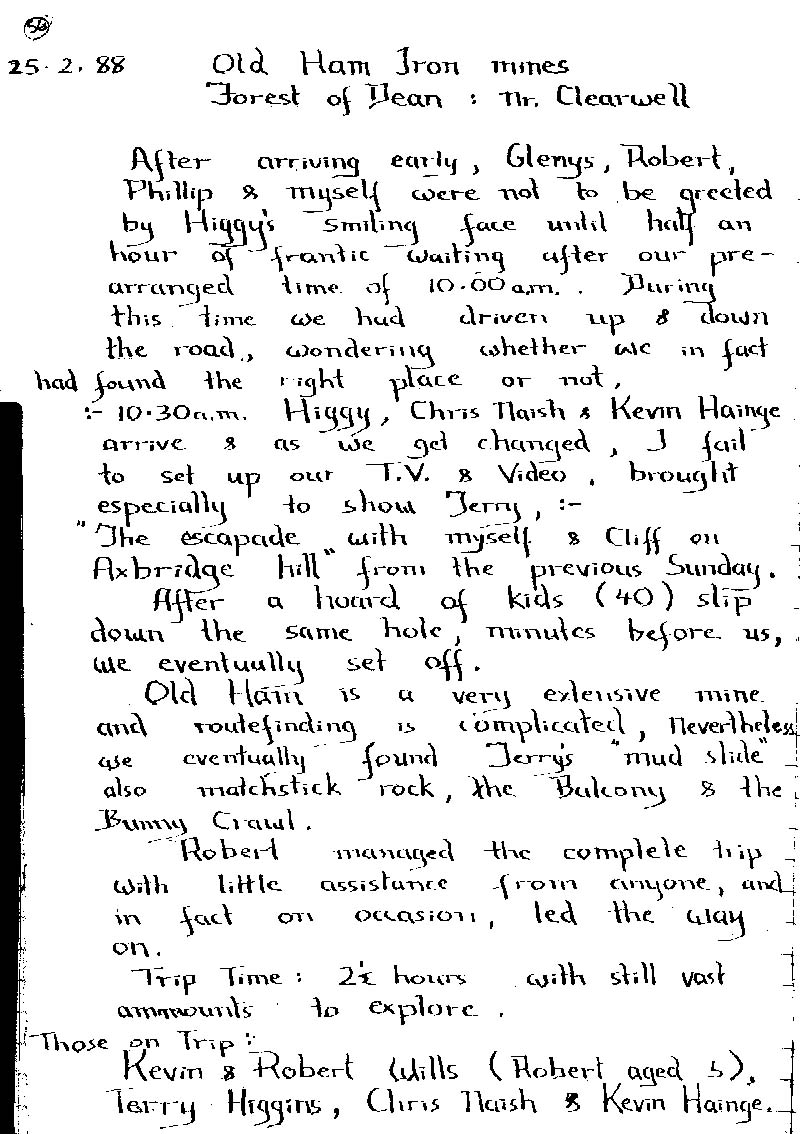 56
25.2.88 Old Ham Iron mines
Forest of Dean : Nr. Clearwell
After arriving early, Glenys, Robert,
Phillip & myself were not to be greeted
by Higgy's smiling face until half an
hour of frantic waiting after our pre-
arranged time of 10.00am.. During
this time we had driven up & down
the road, wondering whether we in fact
had found the right place or not,
:- 10.30a.m. Higgy, Chris Naish & Kevin Hainge
arrive & as we get changed, I fail
to set up our T.V. & Video, brought
especially to show Terry, :-
"The escapade with myself & Cliff on
Axbridge hill" from the previous Sunday.
After a hoard of kids (40) slip
down the same hole, minutes before us,
we eventually set off.
Old Ham is a very extensive mine
and routefinding is complicated, Nevertheless
we eventually found Terry's "mud slide"
also matchstick rock, the Balcony & the
Bunny Crawl.
Robert managed the complete trip
with little assistance from anyone, and
in fact on occasion, led the way
on.
Trip Time : 2½ hours with still vast
ammounts to explore.
Those on Trip :-
Kevin & Robert Wills (Robert aged 5),
Terry Higgins, Chris Naish & Kevin Hainge.